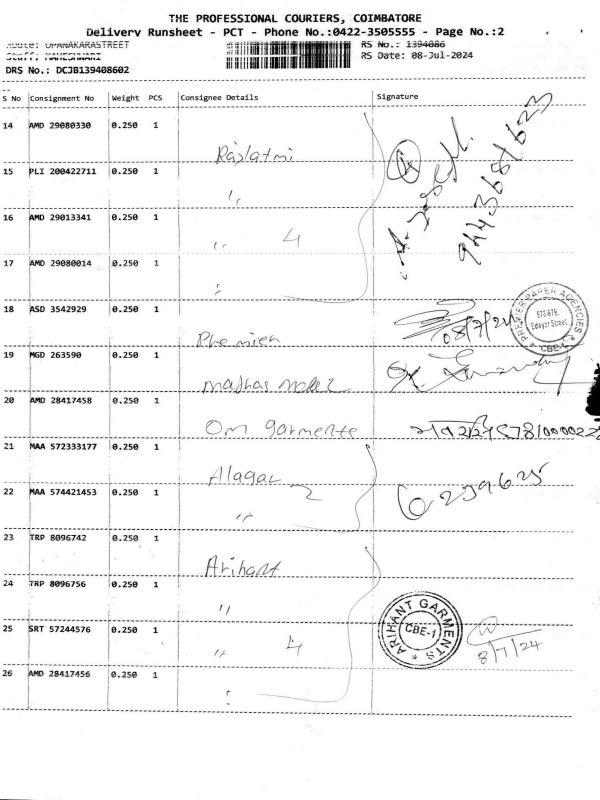 THE PROFESSIONAL COURIERS, COIMBATORE
Delivery Runsheet - PCT - Phone No.:0422-3505555 - Page No.:2
Route: OPANAKARASTREET
RS No.: 1394086
Staff: MAHESHWARI
RS Date: 08-Jul-2024
DRS No.: DCJB139408602
S No Consignment No Weight PCS Consignee Details Signature
14 AMD 29080330 0.250 1 Rajlatmi
15 PLI 200422711 0.250 1 "
16 AMD 29013341 0.250 1 " 4
17 AMD 29080014 0.250 1
18 ASD 3542929 0.250 1 08/7/24
PREMIER PAPER AGENCIES
Edayar Street,
* CBE-1 *
19 MGD 263590 0.250 1
20 AMD 28417458 0.250 1 Om garments
21 MAA 572333177 0.250 1 Alagar
22 MAA 574421453 0.250 1 " 2 239625
23 TRP 8096742 0.250 1 Arihant
24 TRP 8096756 0.250 1 "
25 SRT 57244576 0.250 1 " 4
ARIHANT GARMENTS
CBE-1
8/7/24
26 AMD 28417456 0.250 1